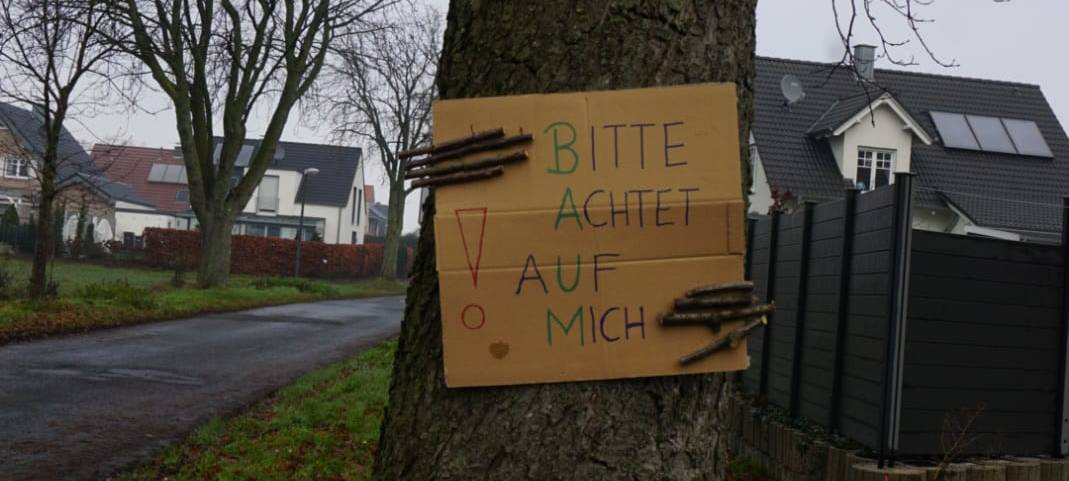 BITTE
ACHTET
AUF
! MICH